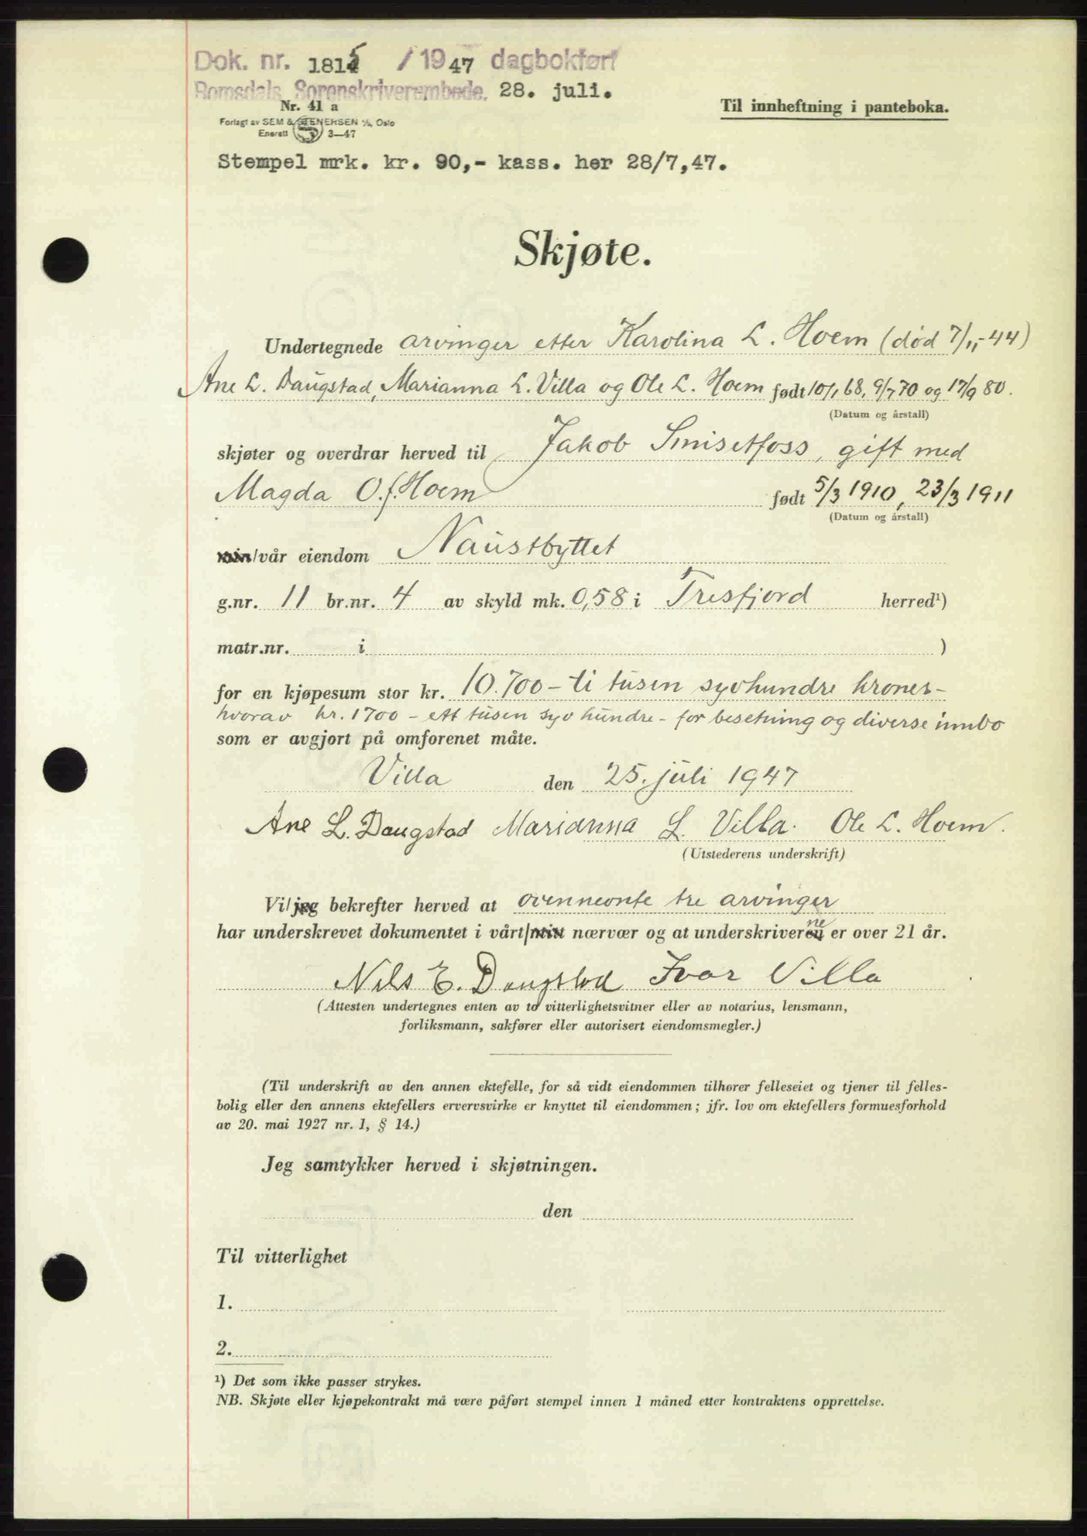 Dok. nr. 1815 / 1947 dagbokført
Romsdals Sorenskriverembede, 28. juli.
Nr. 41 a
Til innheftning i panteboka.
Forlagt av SEM & STENERSEN A/S, Oslo
Enerett 3—47
Stempel mrk. kr. 90,- kass. her 28/7,47.
Skjøte.
Undertegnede arvinger etter Karolina L. Hoem (død 7/1,-44)
Ane L. Daugstad, Marianna L. Villa og Ole L. Hoem født 10/1 68, 9/7 70 og 17/9 80.
(Datum og årstall)
skjøter og overdrar herved til Jakob Smisetfoss, gift med
Magda O. f. Hoem født 5/3 1910, 23/3 1911
(Datum og årstall)
min/vår eiendom Naustbyttet
g.nr. 11 br.nr. 4 av skyld mk. 0,58 i Tresfjord herred¹)
matr.nr. i )
for en kjøpesum stor kr. 10.700 - ti tusen syvhundre kroner-
hvorav kr. 1700 - ett tusen syv hundre - for besetning og diverse innbo
som er avgjort på omforenet måte.
Villa den 25. juli 1947
Ane L. Daugstad Marianna L. Villa. Ole L. Hoem.
(Utstederens underskrift)
Vi/jeg bekrefter herved at ovennevnte tre arvinger
har underskrevet dokumentet i vårt/mitt nærvær og at underskriverne er over 21 år.
Nils E. Daugstad Ivar Villa
(Attesten undertegnes enten av to vitterlighetsvitner eller av notarius, lensmann,
forliksmann, sakfører eller autorisert eiendomsmegler.)
(Til underskrift av den annen ektefelle, for så vidt eiendommen tilhører felleseiet og tjener til felles-
bolig eller den annens ektefellers ervervsvirke er knyttet til eiendommen; jfr. lov om ektefellers formuesforhold
av 20. mai 1927 nr. 1, § 14.)
Jeg samtykker herved i skjøtningen.
den
Til vitterlighet
1.
2.
¹) Det som ikke passer strykes.
NB. Skjøte eller kjøpekontrakt må være påført stempel innen 1 måned etter kontraktens opprettelse.